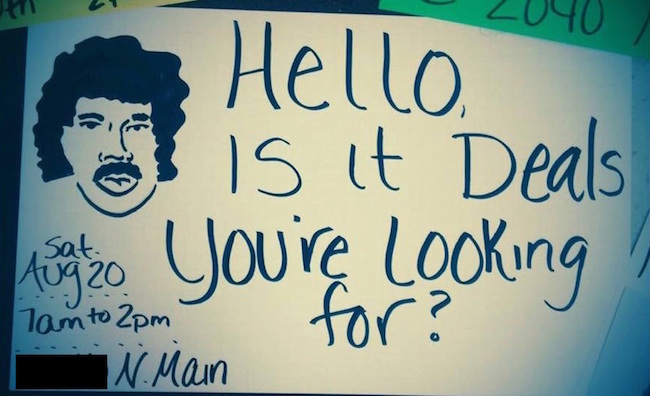 2040
Hello,
Is it Deals
You're Looking
for?
Sat.
Aug 20
7am to 2pm
N. Main